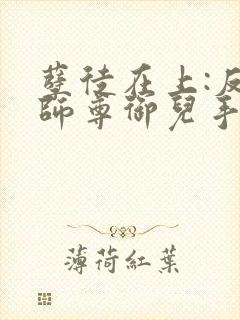 孽徒在上:反
師尊御兒手
薄荷紅葉